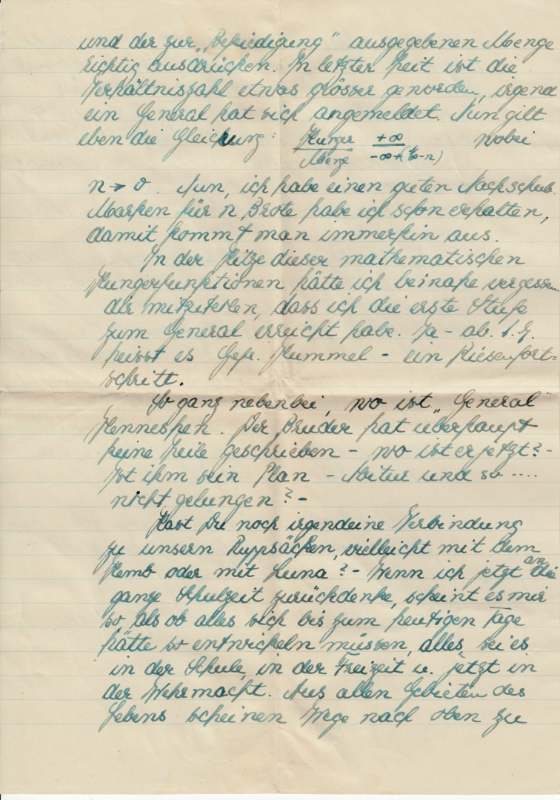 und der zur „Befriedigung" ausgegebenen Menge
richtig ausdrücken. In letzter Zeit ist die
Verhältniszahl etwas grösser geworden, irgend
ein General hat sich angemeldet. Nun gilt
eben die Gleichung: Hunger/Menge +∞/-∞+(-n) wobei
n→0. Nun, ich habe einen guten Nachschub.
Marken für n Brote habe ich schon erhalten,
damit kommt man immerhin aus.
In der Hitze dieser mathematischen
Hungerfunktionen hätte ich beinahe vergessen
dir mitzuteilen, dass ich die erste Stufe
zum General erreicht habe. Ja - ab 1.
heisst es Gefr. Hummel - ein Riesenfort-
schritt.
So ganz nebenbei, wo ist „General"
Henneshen. Der Bruder hat überhaupt
keine Zeile geschrieben - wo ist er jetzt? -
Ist ihm sein Plan - Abitur und so ....
nicht gelungen? -
Hast Du noch irgendeine Verbindung
zu unsern vielleicht mit dem
oder mit Luna? - Wenn ich jetzt an die
ganze Schulzeit zurückdenke, scheint es mir
so, als ob alles sich bis zum heutigen Tage
hätte so entwickeln müssen, alles, sei es
in der Schule, in der Freizeit u. jetzt in
der Wehrmacht. Aus allen Gebieten des
Lebens scheinen Wege nach oben zu